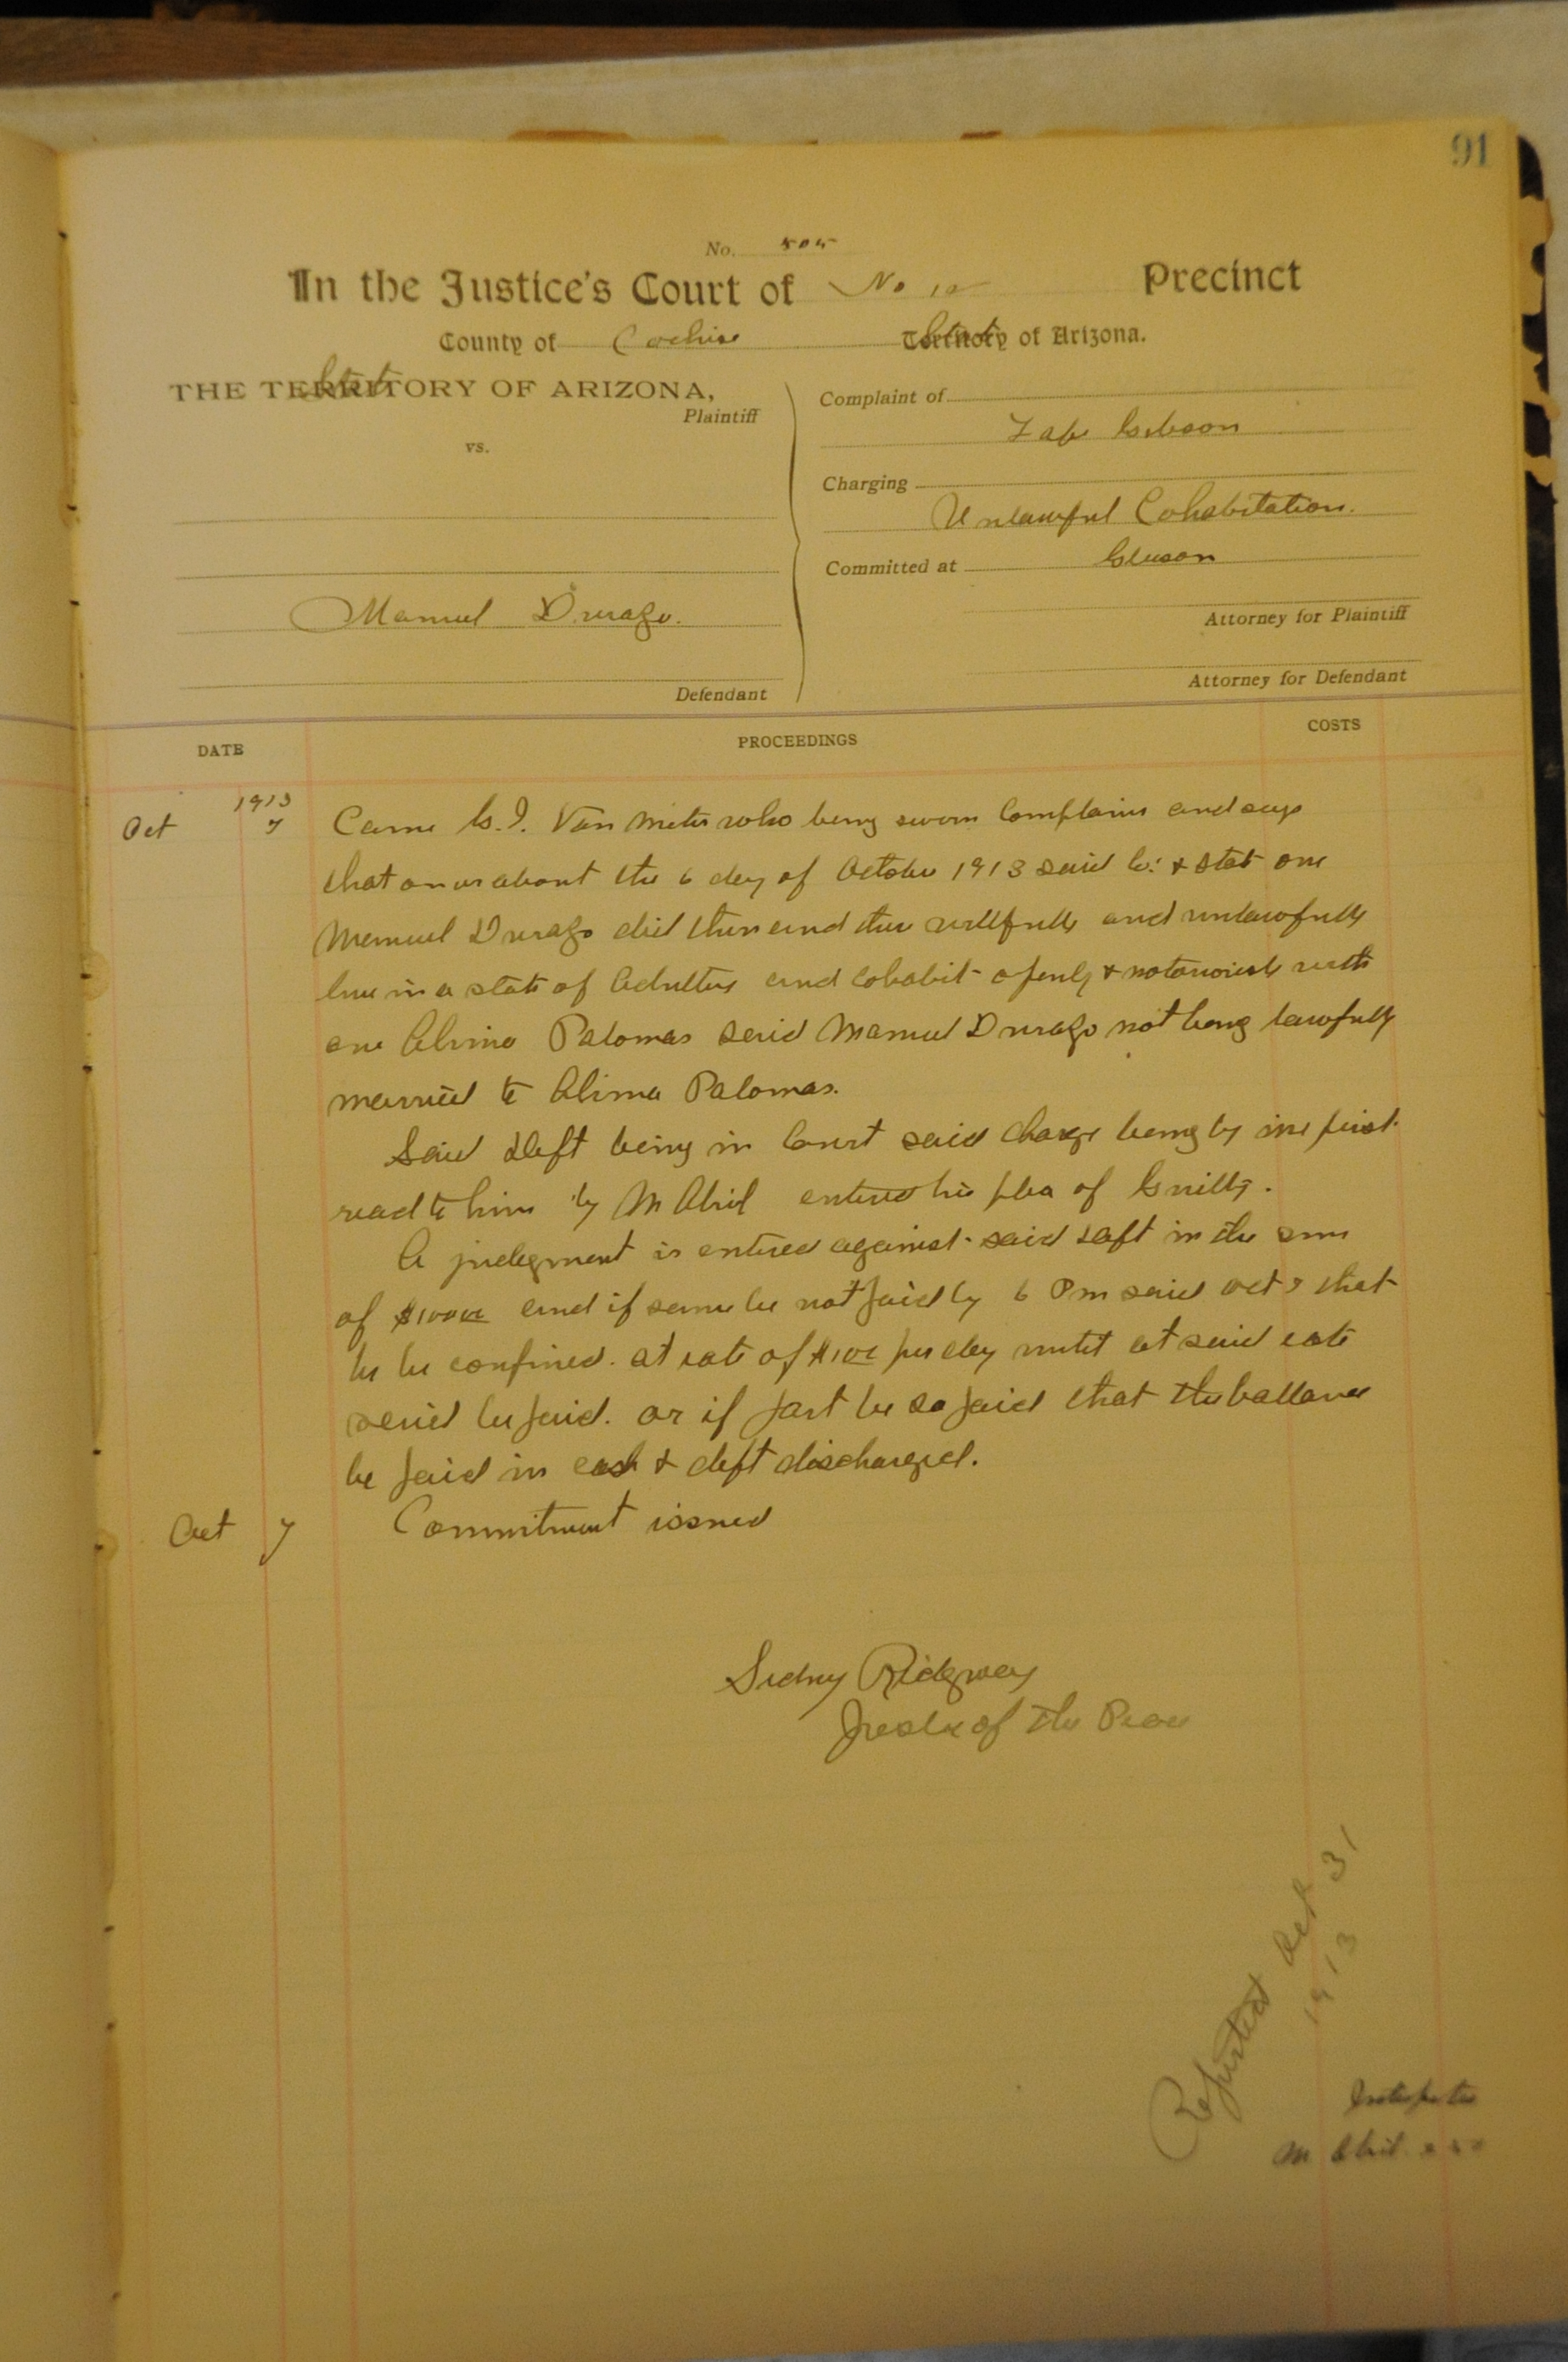 91
No. 505
In the Justice's Court of No 12 Precinct
County of Cochise State of Arizona.
THE TERRITORY OF ARIZONA,
State
Plaintiff
vs.
Manuel Durazo.
Defendant
Complaint of
Gibson
Charging
Unlawful Cohabitation.
Committed at Gleeson
Attorney for Plaintiff
Attorney for Defendant
DATE PROCEEDINGS COSTS
1913
Oct 7 Came G.I. Van Meter who being sworn Complains and says
that on or about the 6 day of October 1913 said Co. & State one
Manuel Durazo did then and there willfully and unlawfully
live in a state of Adultery and Cohabit openly & notoriously with
one Palomas said Manuel Durazo not being lawfully
married to Palomas.
Said Deft being in Court said Charge being by me first
read to him by M Abril entered his plea of Guilty.
A judegment is entered against said Deft in the sum
of $100 00 and if same be not paid by 6 Pm said Oct 7 that
he be confined. at rate of $1 00 per day until at said rate
said be paid. or if part be so paid that the ballance
be paid in cash & deft discharged.
Oct 7 Commitment issued
Sidney Ridgway
Justice of the Peace
Reported Oct 31
1913
Interpeter
M Abril